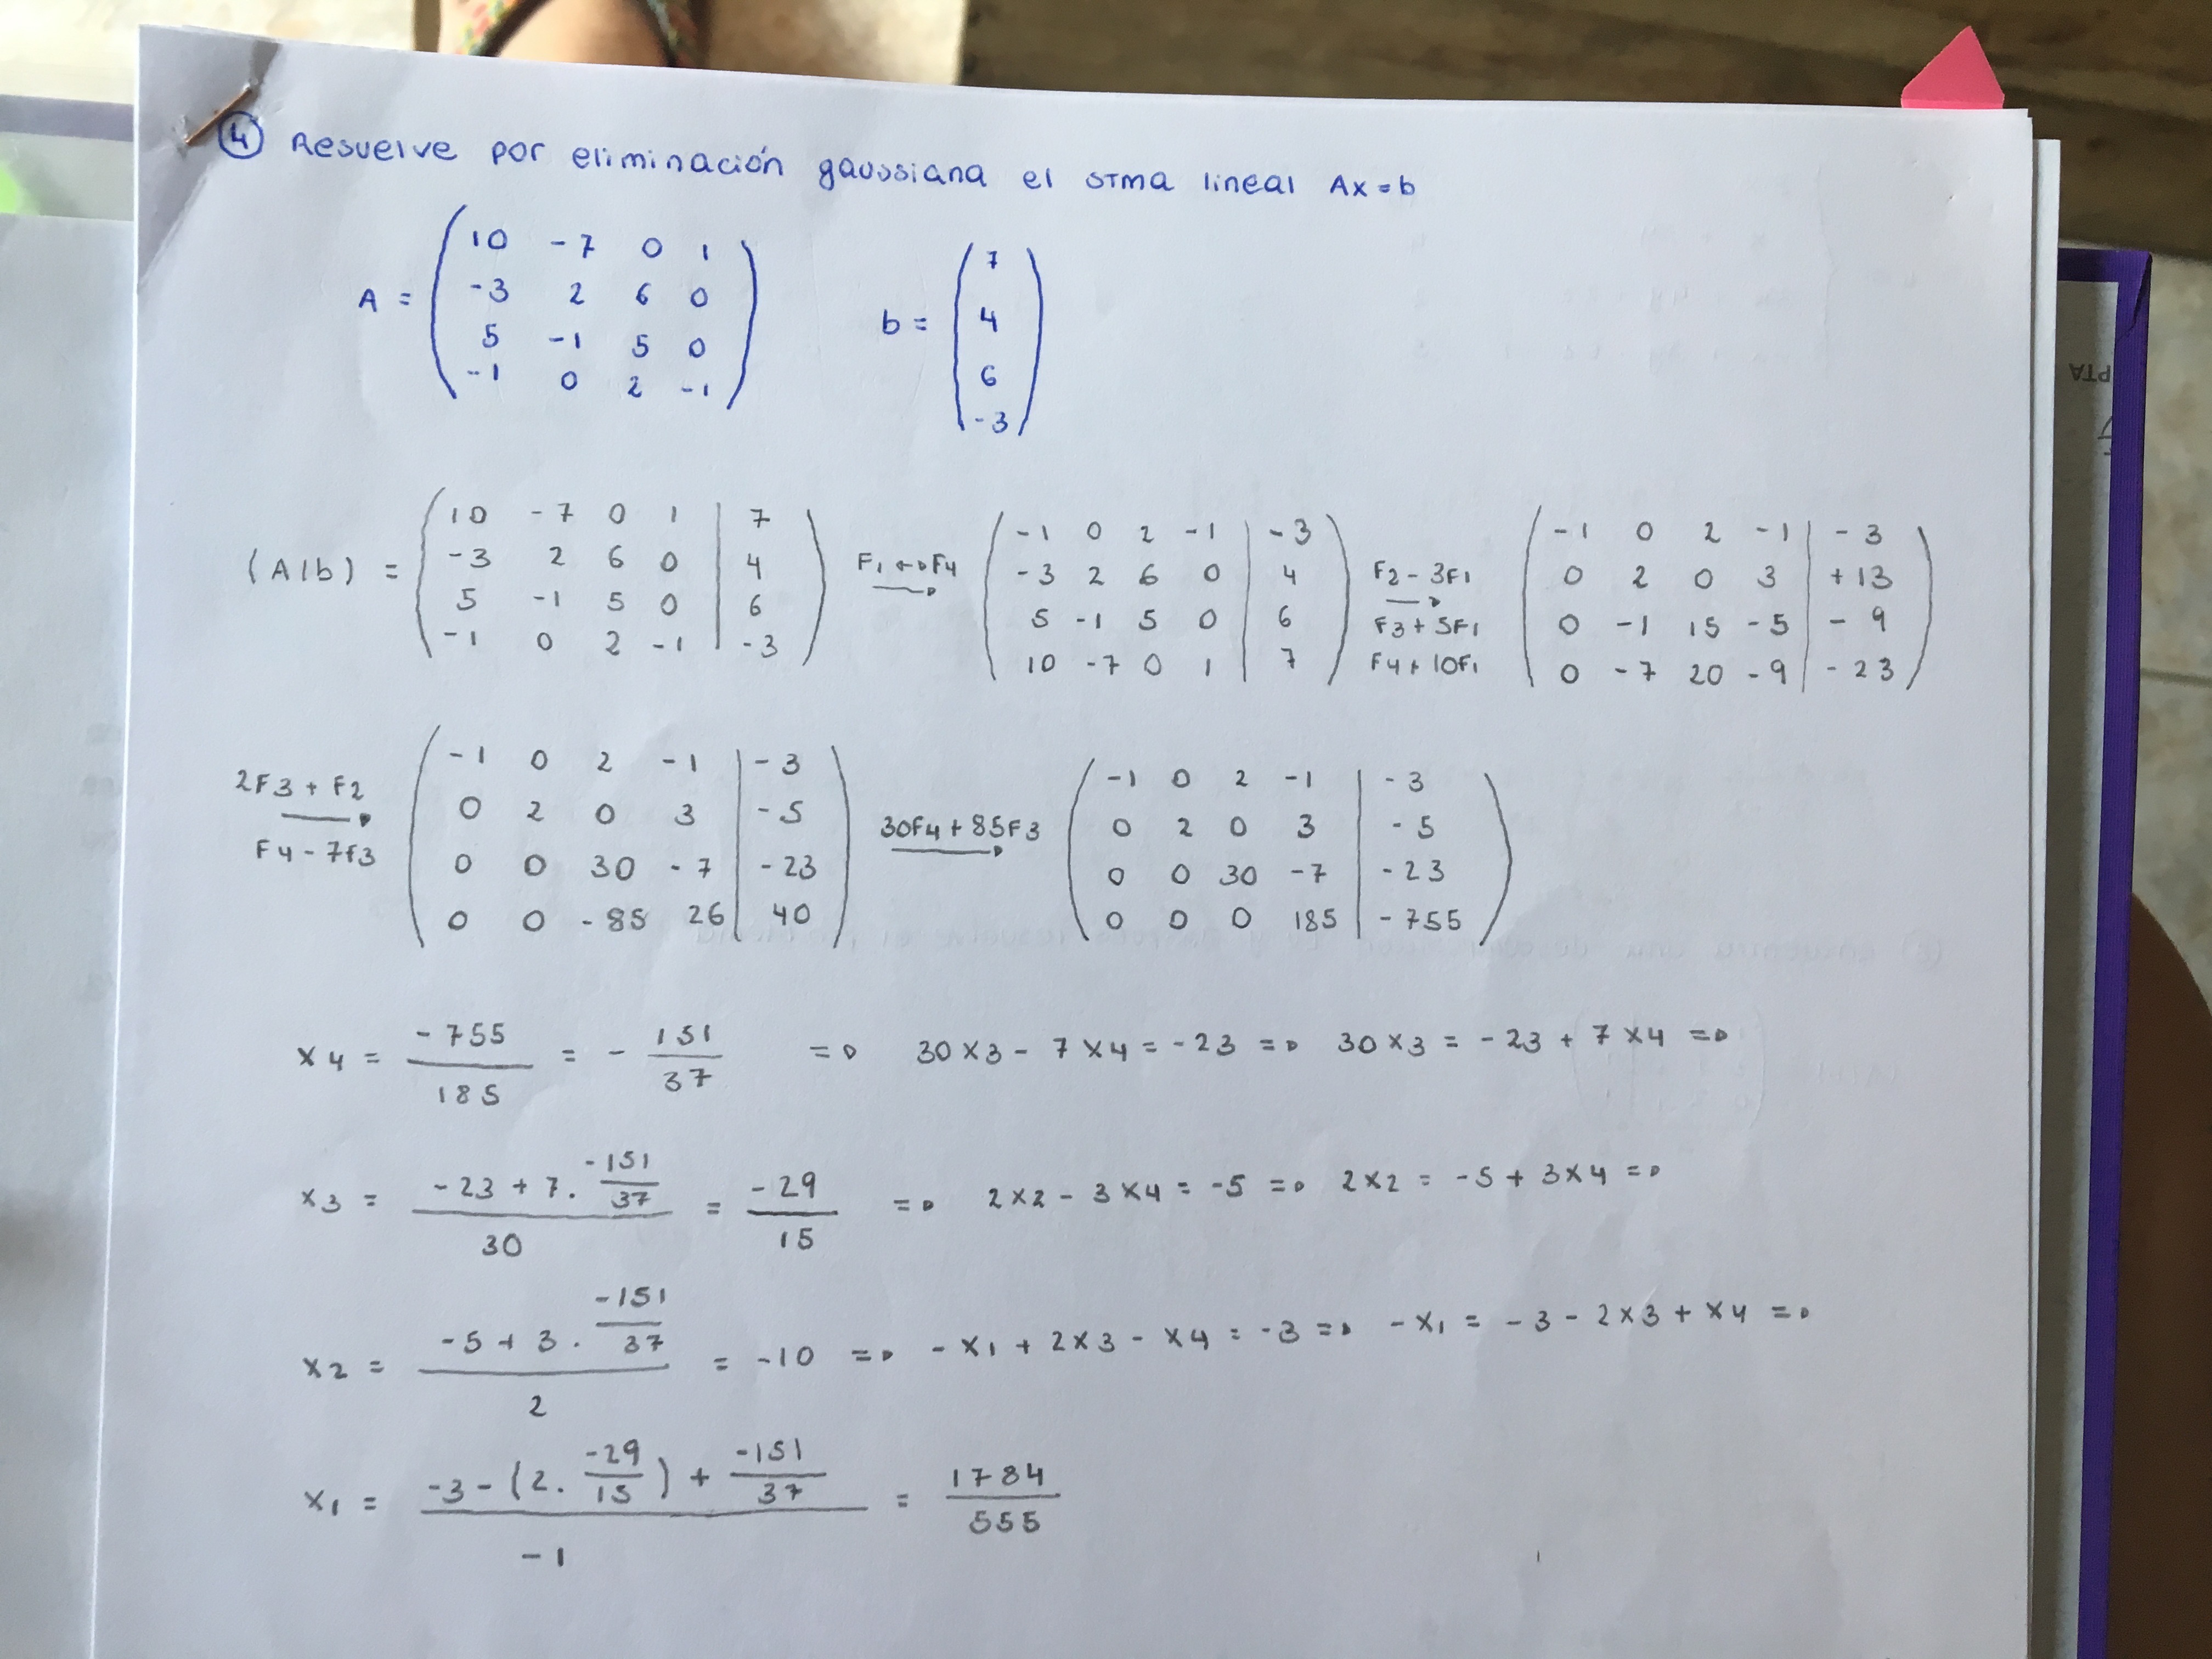 ④ Resuelve por eliminación gaussiana el stma lineal Ax=b
A = ( 10 -7 0 1
-3 2 6 0
5 -1 5 0
-1 0 2 -1 )
b = ( 7
4
6
-3 )
(A|b) = ( 10 -7 0 1 | 7
-3 2 6 0 | 4
5 -1 5 0 | 6
-1 0 2 -1 | -3 )
F1 ↔ F4
( -1 0 2 -1 | -3
-3 2 6 0 | 4
5 -1 5 0 | 6
10 -7 0 1 | 7 )
F2 - 3F1
→
F3 + 5F1
F4 + 10F1
( -1 0 2 -1 | -3
0 2 0 3 | +13
0 -1 15 -5 | -9
0 -7 20 -9 | -23 )
2F3 + F2
→
F4 - 7F3
( -1 0 2 -1 | -3
0 2 0 3 | -5
0 0 30 -7 | -23
0 0 -85 26 | 40 )
30F4 + 85F3
→
( -1 0 2 -1 | -3
0 2 0 3 | -5
0 0 30 -7 | -23
0 0 0 185 | -755 )
x4 = -755/185 = - 151/37 => 30x3 - 7x4 = -23 => 30x3 = -23 + 7x4 =>
x3 = (-23 + 7 . -151/37)/30 = -29/15 => 2x2 - 3x4 = -5 => 2x2 = -5 + 3x4 =>
x2 = (-5 + 3 . -151/37)/2 = -10 => -x1 + 2x3 - x4 = -3 => -x1 = -3 - 2x3 + x4 =>
x1 = (-3 - (2 . -29/15) + -151/37)/-1 = 1784/555
PTA